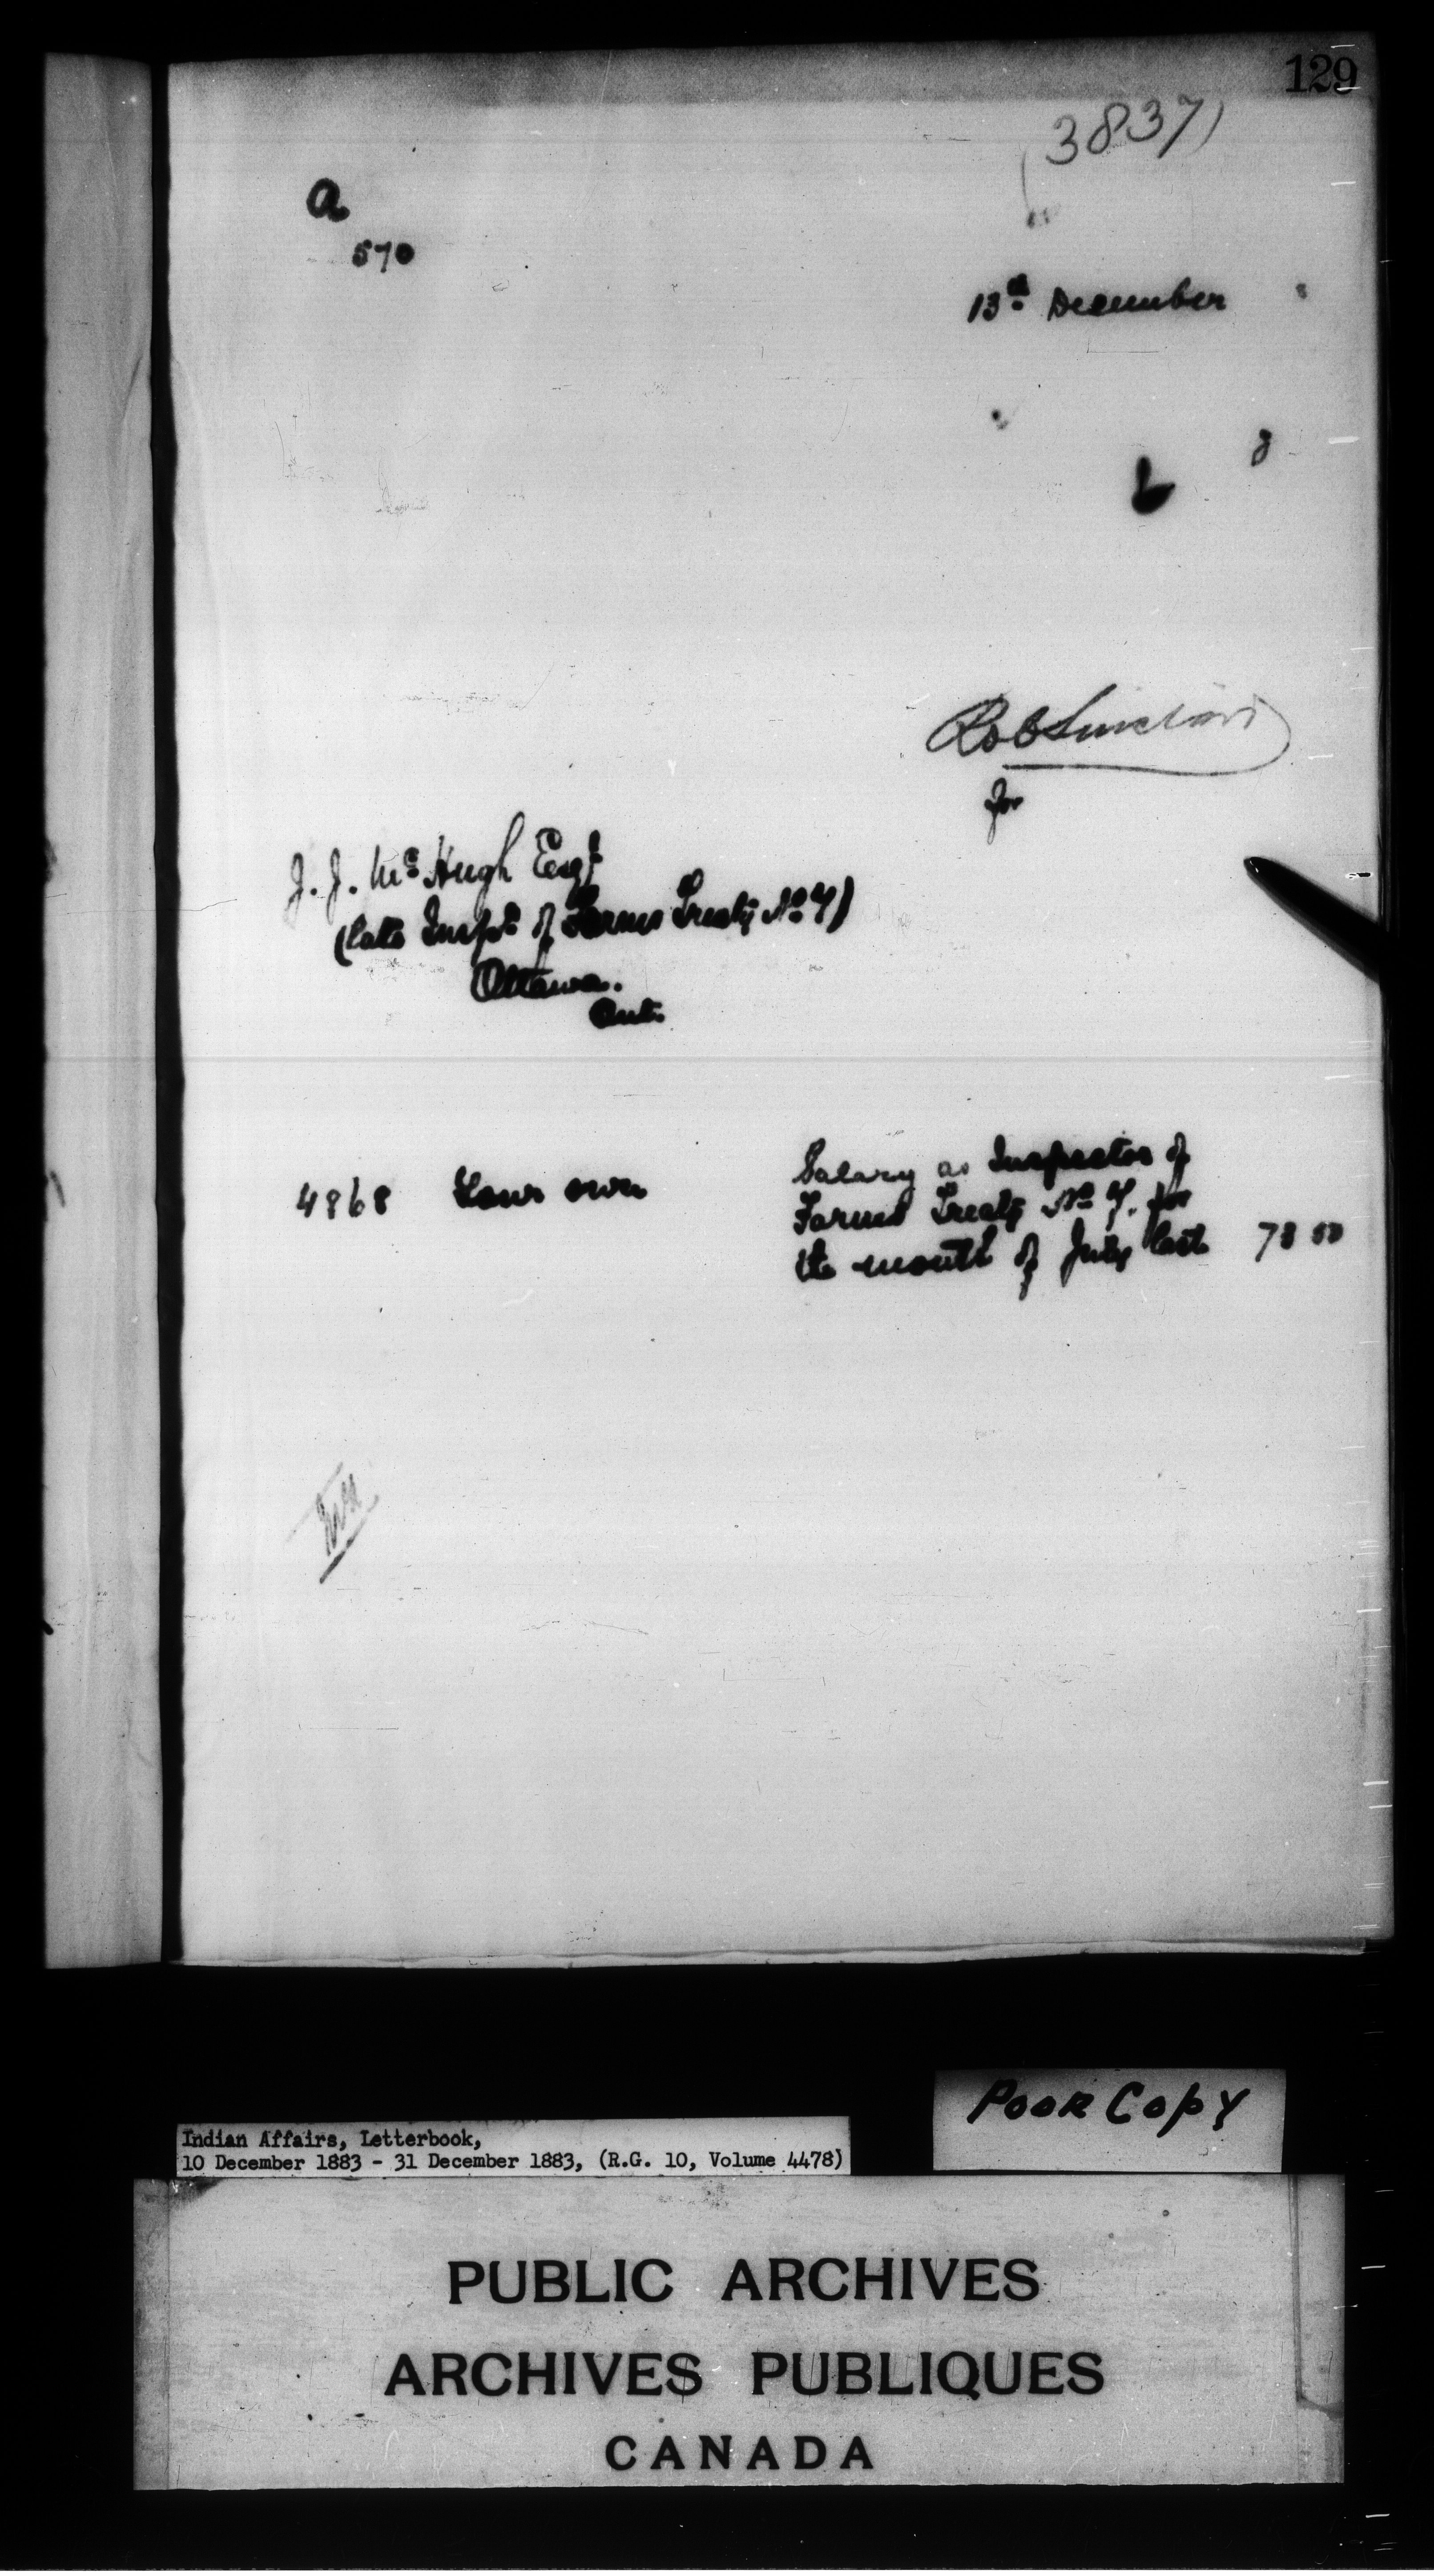 129
(3837)
a
570
13th December
3
b
Rob Sinclair
for
J. J. McHugh Esqr
(late Inspr of Farms Treaty No 7)
Ottawa.
Ont.
4868 Your own Salary as Inspector of
Farms Treaty No 7. for
the month of July last 78 50
Poor Copy
Indian Affairs, Letterbook,
10 December 1883 - 31 December 1883, (R.G. 10, Volume 4478)
PUBLIC ARCHIVES
ARCHIVES PUBLIQUES
CANADA